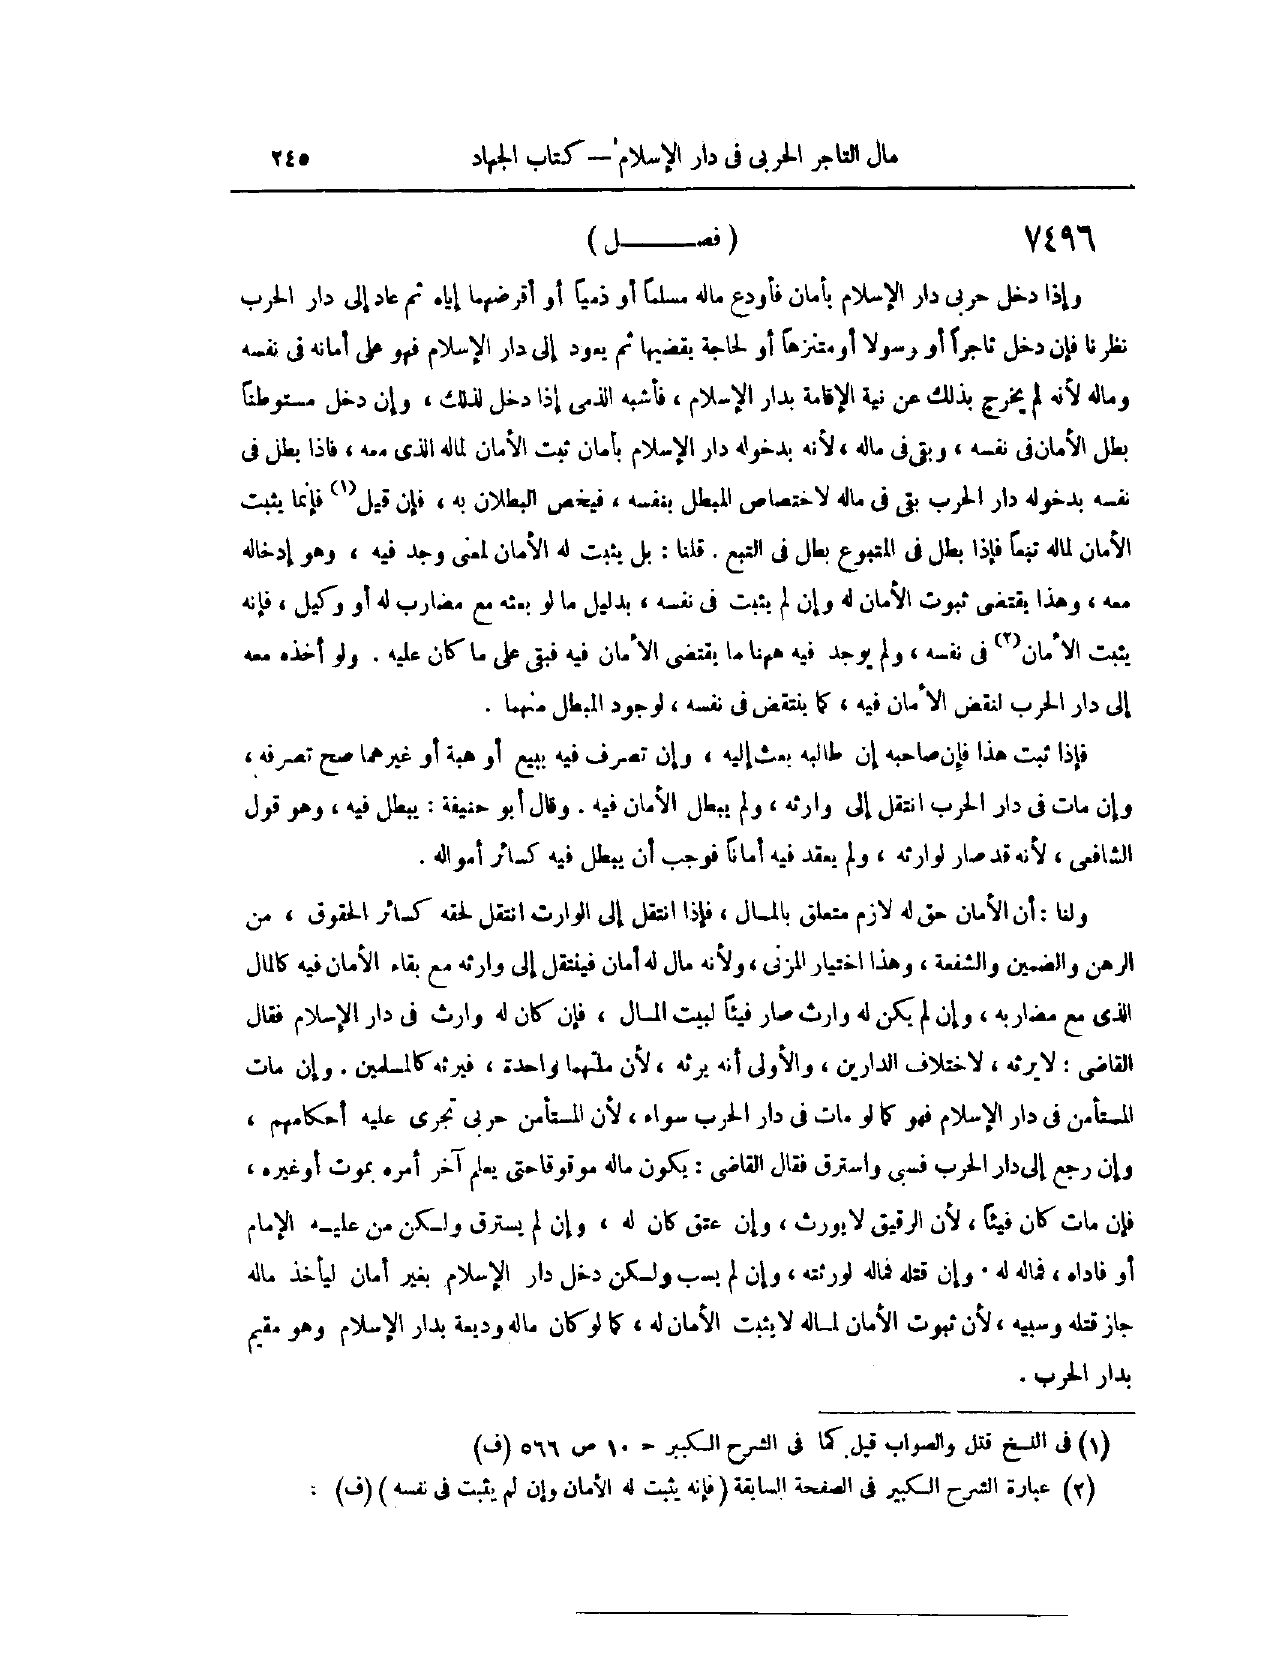 مال التاجر الحربى فى دار الإسلام — كتاب الجهاد ٢٤٥
٧٤٩٦ ( فصـــــل )
وإذا دخل حربى دار الإسلام بأمان فأودع ماله مسلماً أو ذمياً أو أقرضهما إياه ثم عاد إلى دار الحرب
نظرنا فإن دخل تاجراً أو رسولا أو متنزهاً أو لحاجة يقضيها ثم يعود إلى دار الإسلام فهو على أمانه فى نفسه
وماله لأنه لم يخرج بذلك عن نية الإقامة بدار الإسلام ، فأشبه الذمى إذا دخل لذلك ، وإن دخل مستوطناً
بطل الأمان فى نفسه ، وبقى فى ماله ، لأنه بدخوله دار الإسلام بأمان ثبت الأمان لماله الذى معه ، فاذا بطل فى
نفسه بدخوله دار الحرب بقى فى ماله لاختصاص المبطل بنفسه ، فيخص البطلان به ، فإن قيل(١) فإنما يثبت
الأمان لماله تبعاً فإذا بطل فى المتبوع بطل فى التبع . قلنا : بل يثبت له الأمان لمعنى وجد فيه ، وهو إدخاله
معه ، وهذا يقتضى ثبوت الأمان له وإن لم يثبت فى نفسه ، بدليل ما لو بعثه مع مضارب له أو وكيل ، فإنه
يثبت الأمان(٢) فى نفسه ، ولم يوجد فيه ههنا ما يقتضى الأمان فيه فبقى على ما كان عليه . ولو أخذه معه
إلى دار الحرب لنقض الأمان فيه ، كما ينتقض فى نفسه ، لوجود المبطل منهما .
فإذا ثبت هذا فإن صاحبه إن طالبه بعث إليه ، وإن تصرف فيه ببيع أو هبة أو غيرهما صح تصرفه ،
وإن مات فى دار الحرب انتقل إلى وارثه ، ولم يبطل الأمان فيه . وقال أبو حنيفة : يبطل فيه ، وهو قول
الشافعى ، لأنه قد صار لوارثه ، ولم يعقد فيه أماناً فوجب أن يبطل فيه كسائر أمواله .
ولنا : أن الأمان حق له لازم متعلق بالمـال ، فإذا انتقل إلى الوارث انتقل لحقه كسائر الحقوق ، من
الرهن والضمين والشفعة ، وهذا اختيار المزنى ، ولأنه مال له أمان فينتقل إلى وارثه مع بقاء الأمان فيه كالمال
الذى مع مضاربه ، وإن لم يكن له وارث صار فيئاً لبيت المـال ، فإن كان له وارث فى دار الإسلام فقال
القاضى : لا يرثه ، لاختلاف الدارين ، والأولى أنه يرثه ، لأن ملتهما واحدة ، فيرثه كالمسلمين . وإن مات
المستأمن فى دار الإسلام فهو كما لو مات فى دار الحرب سواء ، لأن المستأمن حربى تجرى عليه أحكامهم ،
وإن رجع إلى دار الحرب فسبى واسترق فقال القاضى : يكون ماله موقوفا حتى يعلم آخر أمره بموت أو غيره ،
فإن مات كان فيئاً ، لأن الرقيق لا يورث ، وإن عتق كان له ، وإن لم يسترق ولـكن من عليـه الإمام
أو فاداه ، فماله له . وإن قتله فماله لورثته ، وإن لم يسب ولـكن دخل دار الإسلام بغير أمان ليأخذ ماله
جاز قتله وسبيه ، لأن ثبوت الأمان لمـاله لا يثبت الأمان له ، كما لو كان ماله وديعة بدار الإسلام وهو مقيم
بدار الحرب .
(١) فى النسخ قتل والصواب قيل كما فى الشرح الـكبير حـ ١٠ ص ٥٦٦ (ف)
(٢) عبارة الشرح الـكبير فى الصفحة السابقة ( فإنه يثبت له الأمان وإن لم يثبت فى نفسه ) (ف) :